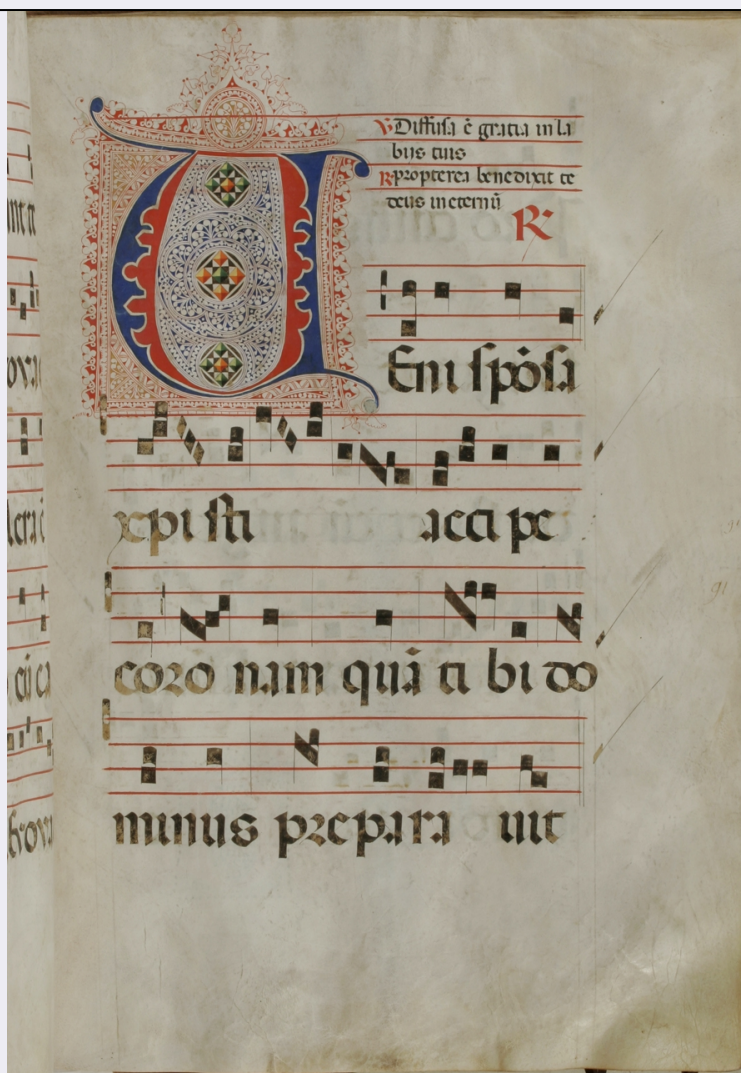 ℣ Diffusa ē gratia in la
bijs tuis
℟ propterea benedixit te
deus in eternū
℟
VEni spōsa
xpi sti acci pe
coro nam quā ti bi do
minus prepara uit